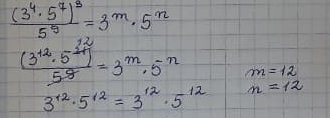 (3⁴ · 5⁷)³ / 5⁹ = 3ᵐ · 5ⁿ
(3¹² · 5²¹)¹² / 5⁹ = 3ᵐ · 5ⁿ
3¹² · 5¹² = 3¹² · 5¹²
m = 12
n = 12